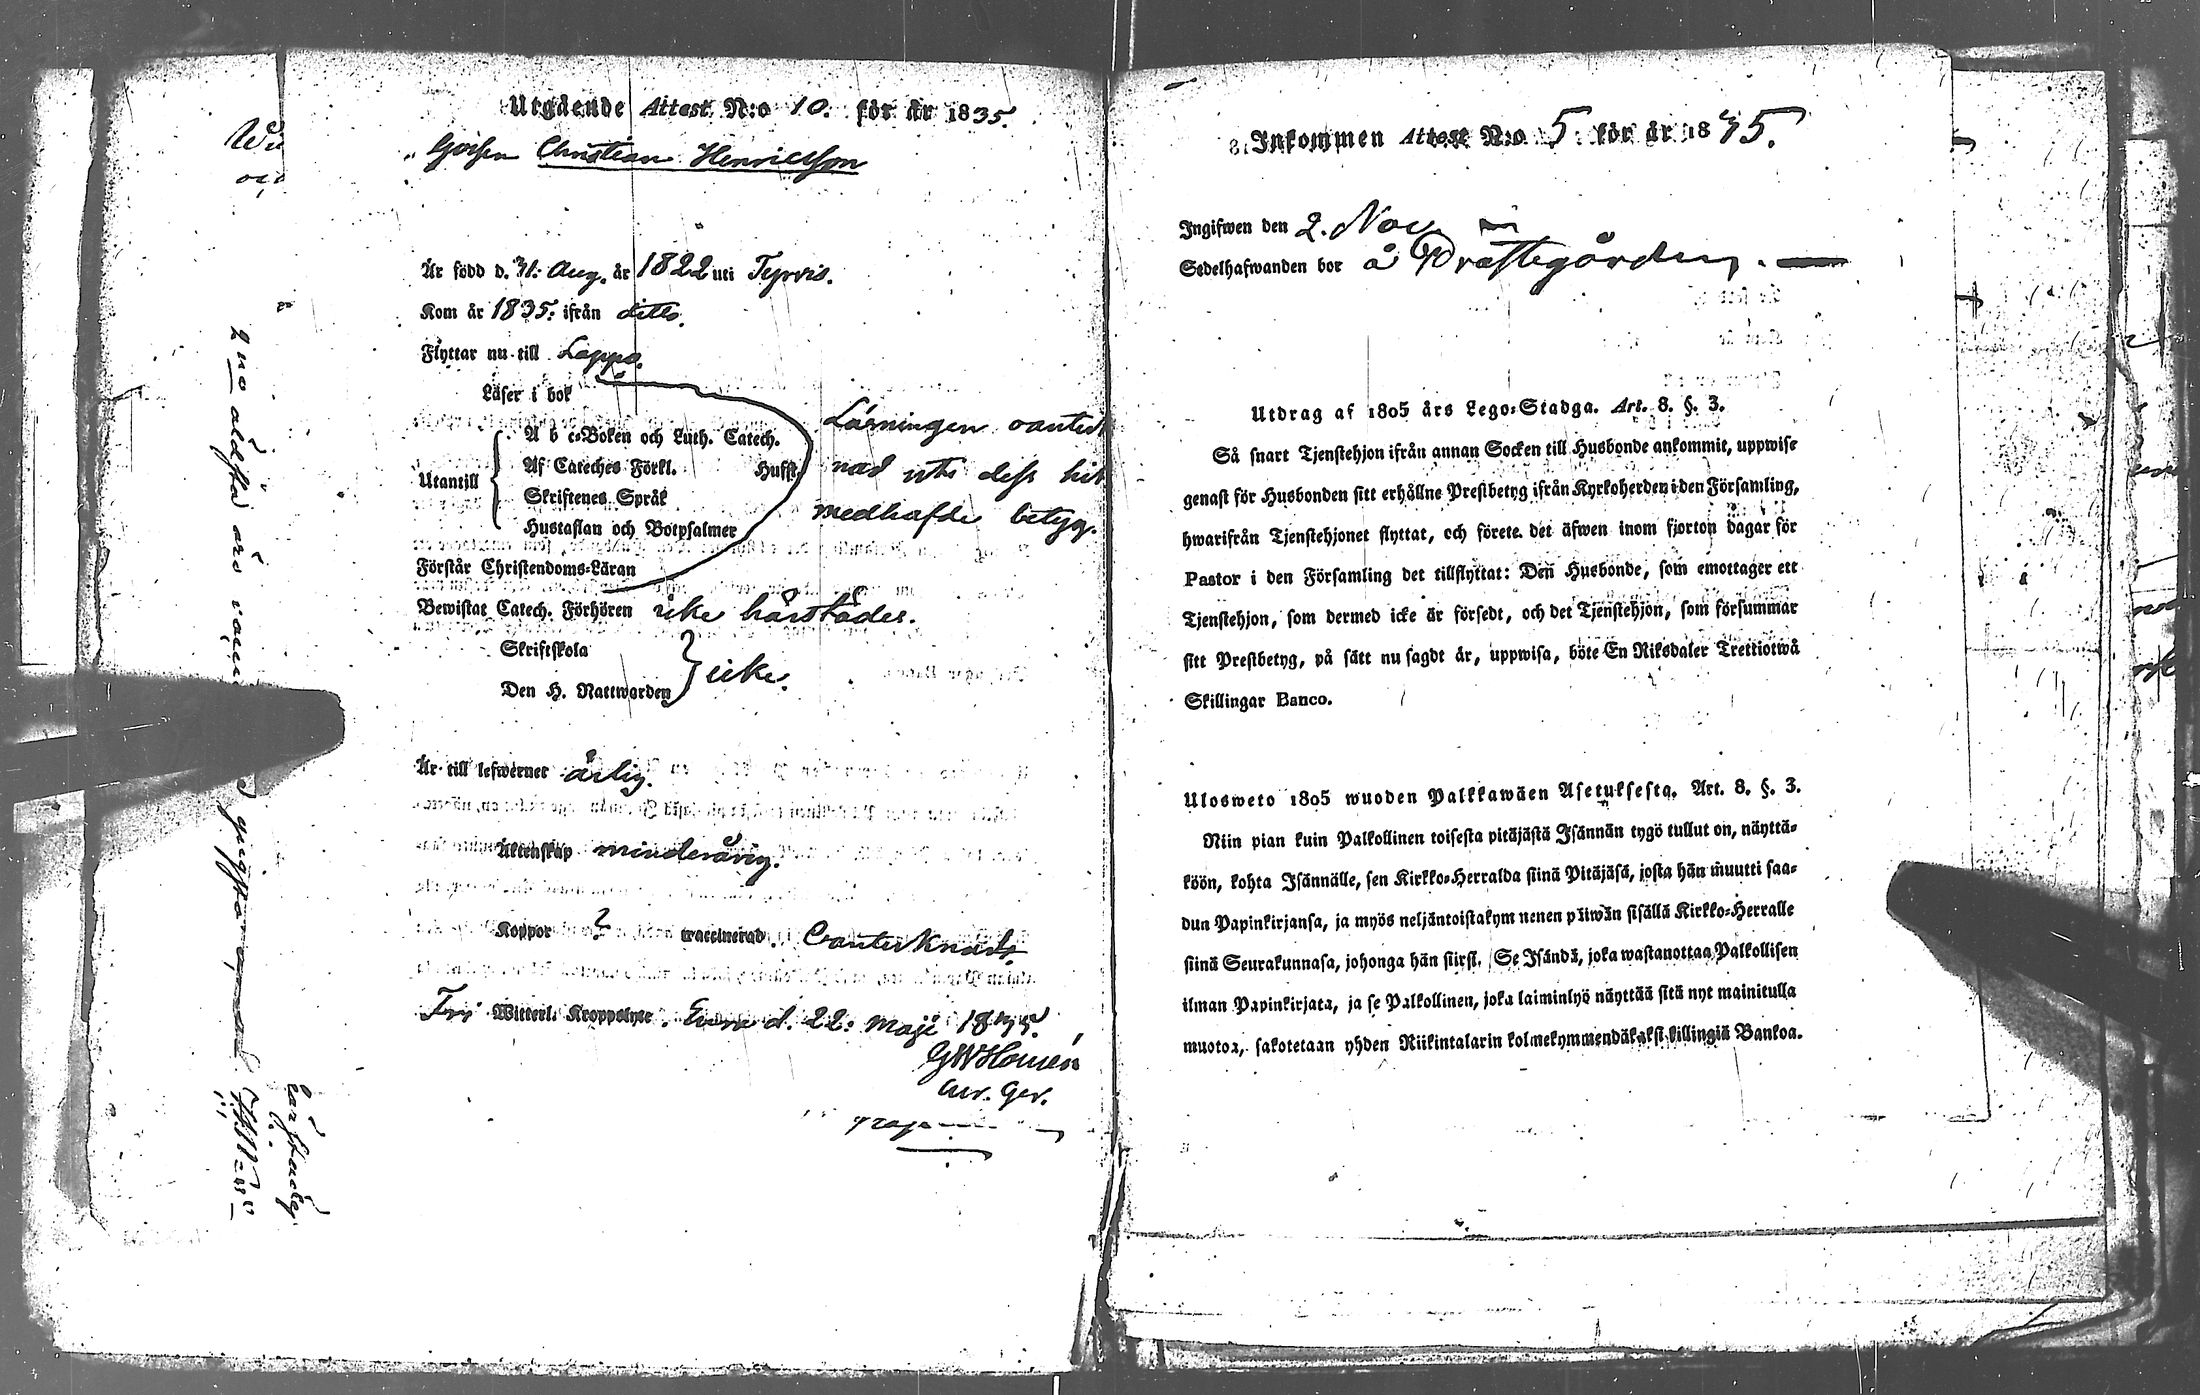 Utgående Attest N:o 10. för år 1835.
Gossen Christian Henricsson
Är född d. 31. Aug. år 1822 uti Tyrvis.
Kom år 1835. ifrån ditto.
Flyttar nu till Lappo.
Läser i bok
Utantill
A b c-Boken och Luth. Catech.
Af Cateches Förkl. Husst.
Skriftenes Språk
Hustaflan och Botpsalmer
Läsningen oanteck
nad uti dess hit
medhafde betyg.
Förstår Christendoms-Läran
Bewistat Catech. Förhören icke härstädes.
Skriftskola
Den H. Nattwarden
icke.
Är till lefwernet ärlig.
Äktenskap minderårig.
Koppor ? waccinerad. Oantecknadt.
Fri Witterl. Kroppslyte. Eura d. 22. Maji 1835.
GWHomén
Inkommen Attest N:o 5 för år 1835.
Ingifwen den 2. Nov.
Sedelhafwanden bor å Prästegården.
Utdrag af 1805 års Lego-Stadga. Art. 8. §. 3.
Så snart Tjenstehjon ifrån annan Socken till Husbonde ankommit, uppwise
genast för Husbonden sitt erhållne Prestbetyg ifrån Kyrkoherden i den Församling,
hwarifrån Tjenstehjonet flyttat, och förete det äfwen inom fjorton dagar för
Pastor i den Församling det tillflyttat: Den Husbonde, som emottager ett
Tjenstehjon, som dermed icke är försedt, och det Tjenstehjon, som försummar
sitt Prestbetyg, på sätt nu sagdt är, uppwisa, böte En Riksdaler Trettiotwå
Skillingar Banco.
Ulosweto 1805 wuoden Palkkawäen Asetuksesta. Art. 8. §. 3.
Niin pian kuin Palkollinen toisesta pitäjästä Isännän tygö tullut on, näyttä-
köön, kohta Isännälle, sen Kirkko-Herralda siinä Pitäjäsä, josta hän muutti saa-
dun Papinkirjansa, ja myös neljäntoistakymmenen päiwän sisällä Kirkko-Herralle
siinä Seurakunnasa, johonga hän siirsi. Se Isändä, joka wastanottaa Palkollisen
ilman Papinkirjata, ja se Palkollinen, joka laiminlyö näyttää sitä nyt mainitulla
muotoa, sakotetaan yhden Riikintalarin kolmekymmendäkaksi killingiä Bankoa.